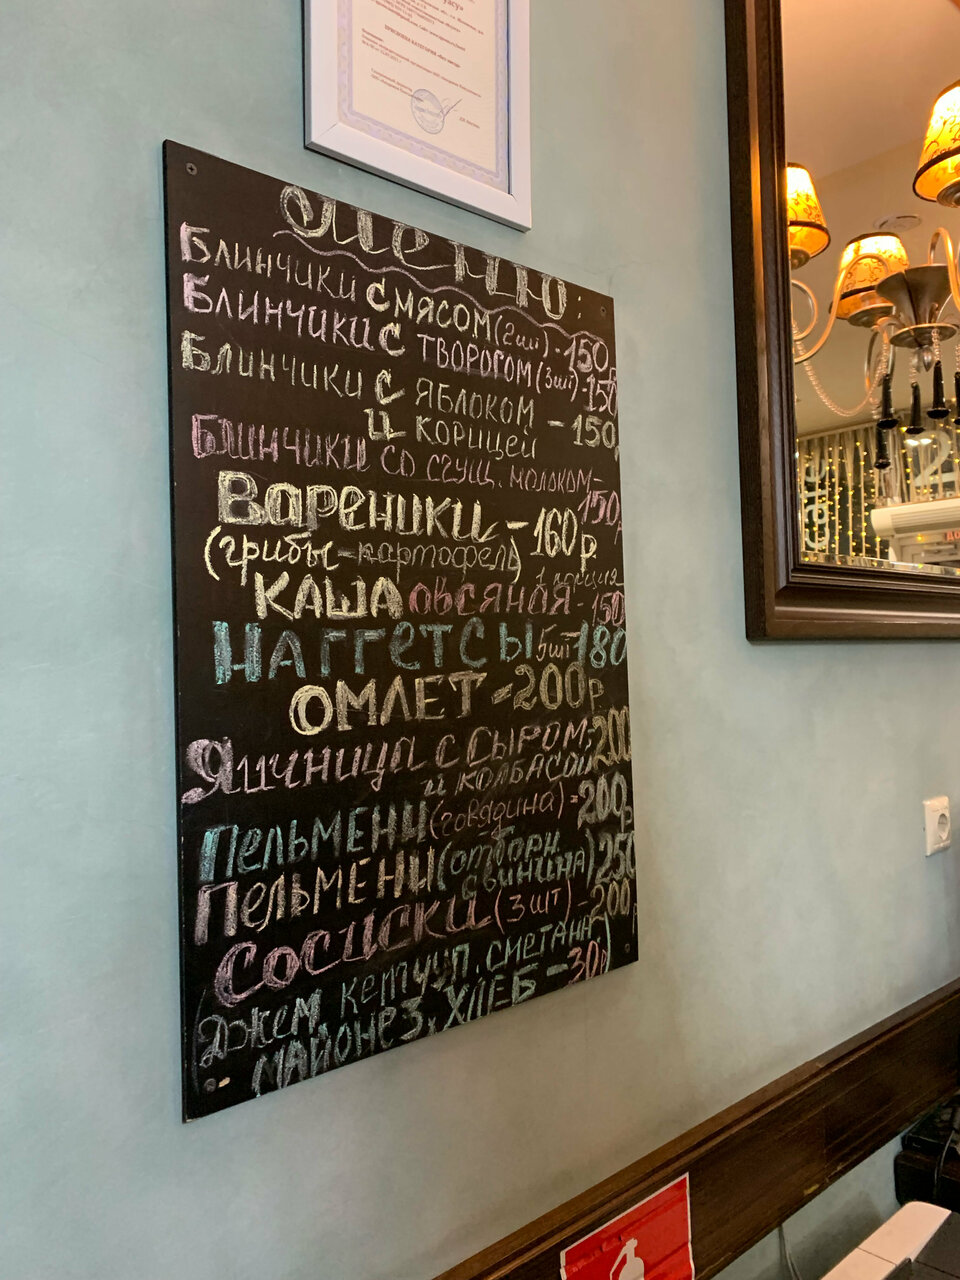 Меню:
Блинчики с мясом (2шт) - 150р
Блинчики с творогом (3шт) - 150
Блинчики с яблоком
и корицей - 150р
Блинчики со сгущ. молоком -
150р
Вареники - 160р
(грибы-картофель)
1 порция
Каша овсяная - 150
Наггетсы 5шт 180
Омлет - 200р
Яичница с сыром - 200
и колбасой
Пельмени (говядина) - 200р
Пельмени (отборн.
свинина) 250
Сосиски (3шт) - 200р
Джем, кетчуп, сметана
майонез, хлеб - 30р